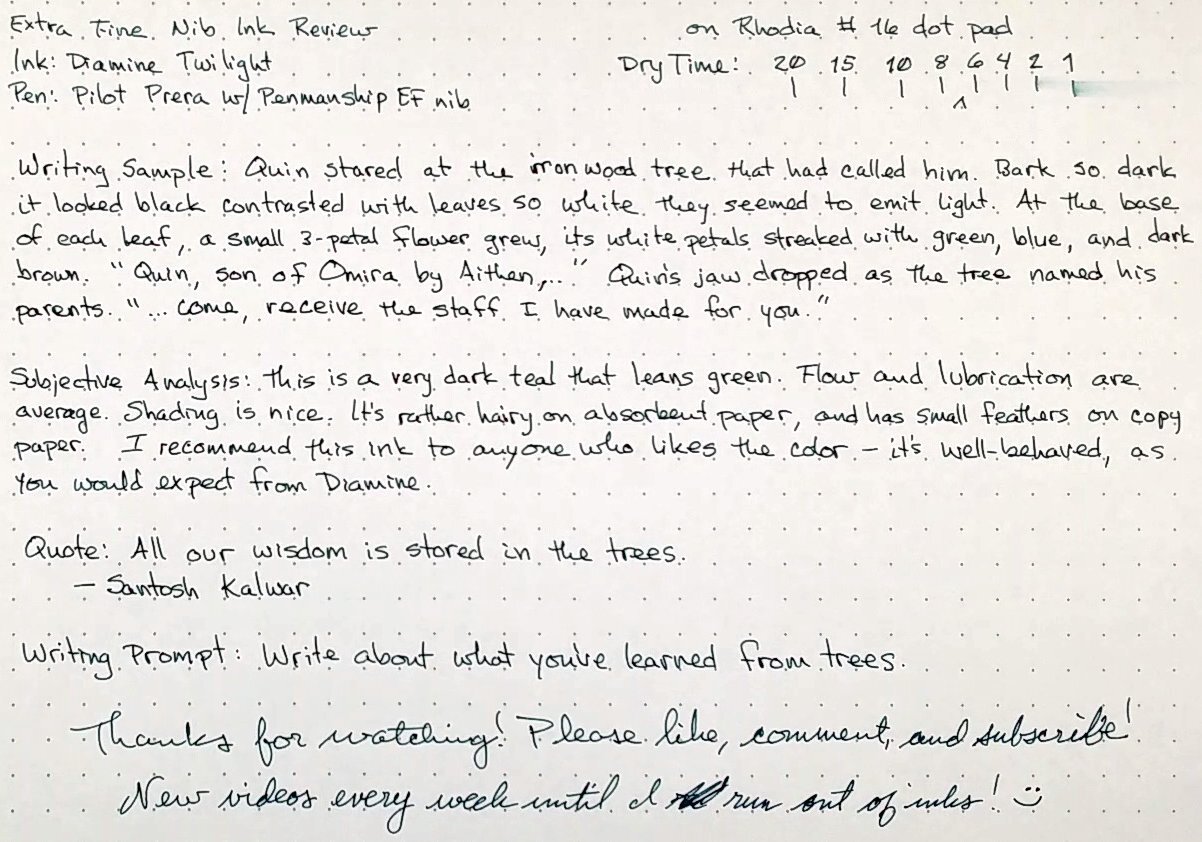 Extra Fine Nib Ink Review
on Rhodia # 16 dot pad
Ink: Diamine Twilight
Dry Time: 20 15 10 8 6 4 2 1
Pen: Pilot Prera w/ Penmanship EF nib
Writing Sample: Quin stared at the ironwood tree that had called him. Bark so dark
it looked black contrasted with leaves so white they seemed to emit light. At the base
of each leaf, a small 3-petal flower grew, its white petals streaked with green, blue, and dark
brown. "Quin, son of Omira by Aithen,..." Quin's jaw dropped as the tree named his
parents. "... come, receive the staff I have made for you."
Subjective Analysis: this is a very dark teal that leans green. Flow and lubrication are
average. Shading is nice. It's rather hairy on absorbent paper, and has small feathers on copy
paper. I recommend this ink to anyone who likes the color - it's well-behaved, as
you would expect from Diamine.
Quote: All our wisdom is stored in the trees.
- Santosh Kalwar
Writing Prompt: Write about what you've learned from trees.
Thanks for watching! Please like, comment, and subscribe!
New videos every week until I run out of inks! :)